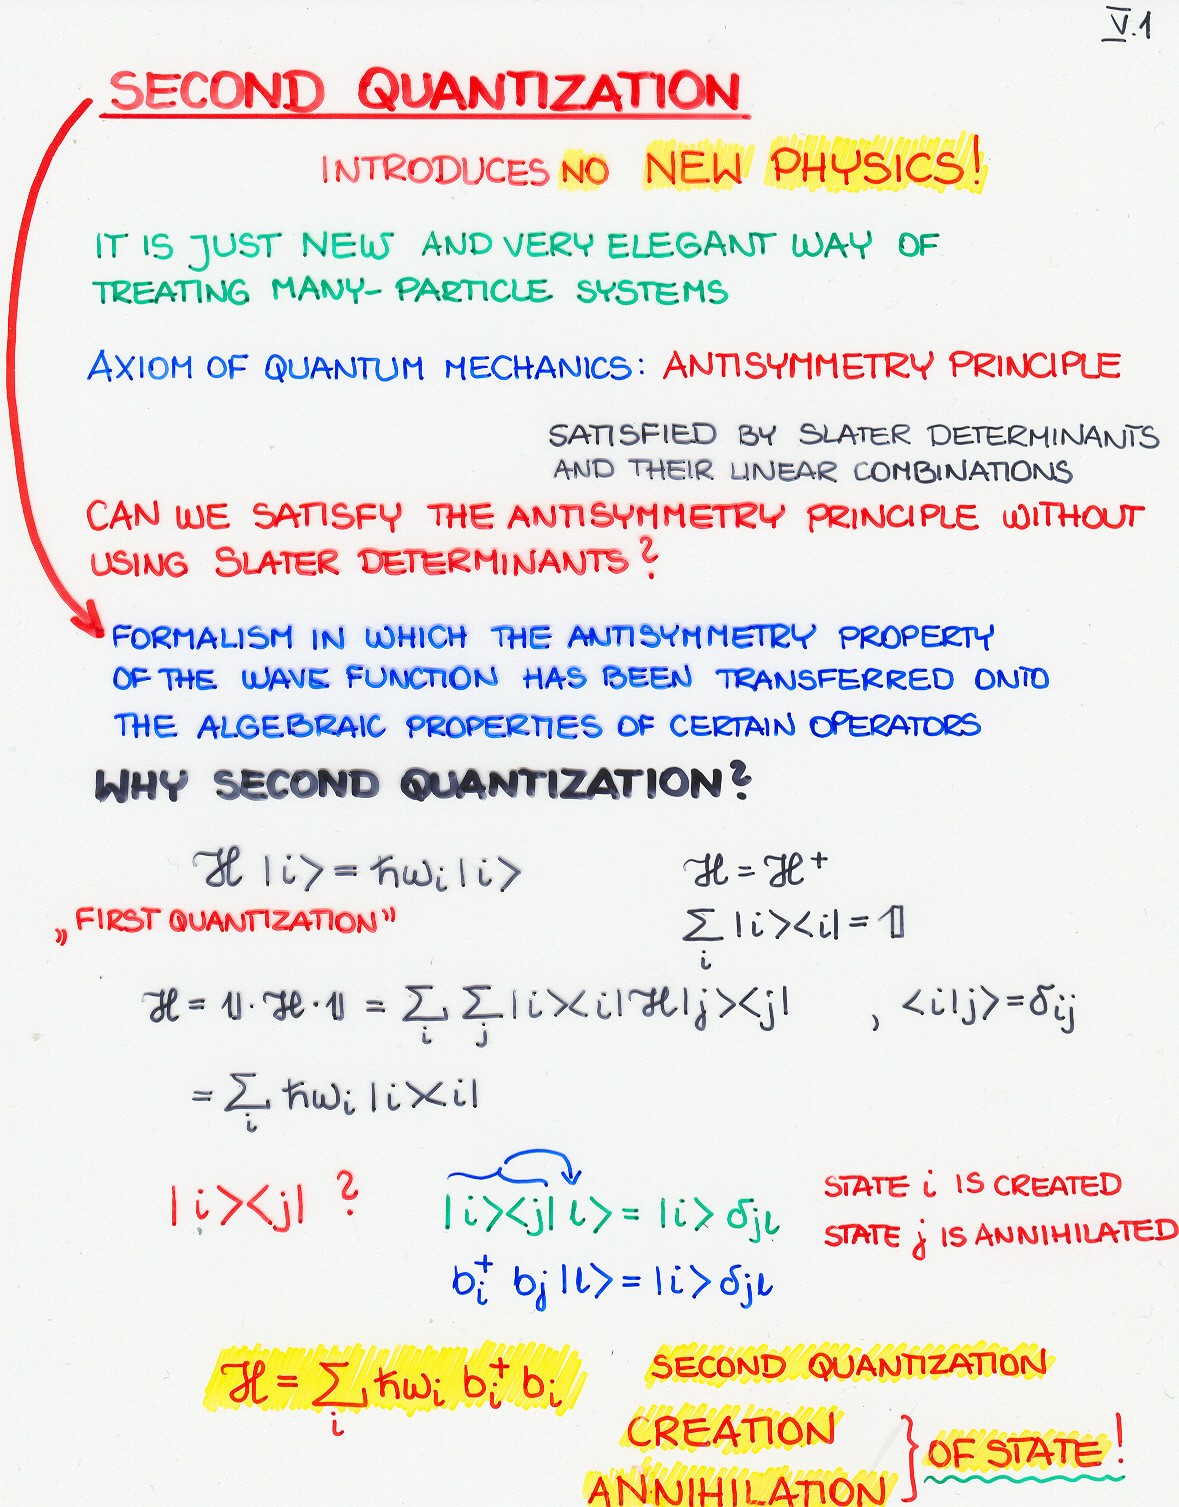 V.1
SECOND QUANTIZATION
INTRODUCES NO NEW PHYSICS!
IT IS JUST NEW AND VERY ELEGANT WAY OF
TREATING MANY- PARTICLE SYSTEMS
AXIOM OF QUANTUM MECHANICS: ANTISYMMETRY PRINCIPLE
SATISFIED BY SLATER DETERMINANTS
AND THEIR LINEAR COMBINATIONS
CAN WE SATISFY THE ANTISYMMETRY PRINCIPLE WITHOUT
USING SLATER DETERMINANTS?
FORMALISM IN WHICH THE ANTISYMMETRY PROPERTY
OF THE WAVE FUNCTION HAS BEEN TRANSFERRED ONTO
THE ALGEBRAIC PROPERTIES OF CERTAIN OPERATORS
WHY SECOND QUANTIZATION?
ℋ |i> = ħωᵢ |i> ℋ = ℋ⁺
„FIRST QUANTIZATION” ∑ᵢ |i><i| = 𝟙
ℋ = 𝟙·ℋ·𝟙 = ∑ᵢ ∑ⱼ |i><i|ℋ|j><j| , <i|j> = δᵢⱼ
= ∑ᵢ ħωᵢ |i><i|
|i><j| ? |i><j|l> = |i> δⱼₗ STATE i IS CREATED
STATE j IS ANNIHILATED
bᵢ⁺ bⱼ |l> = |i> δⱼₗ
ℋ = ∑ᵢ ħωᵢ bᵢ⁺ bᵢ SECOND QUANTIZATION
CREATION
ANNIHILATION } OF STATE!